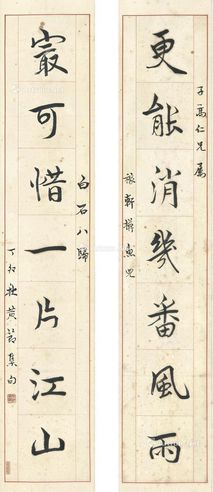 子仁兄屬
更能消幾番風雨
稼軒摸魚兒
白石八歸
㝡可惜一片江山
丁卯黃節集句